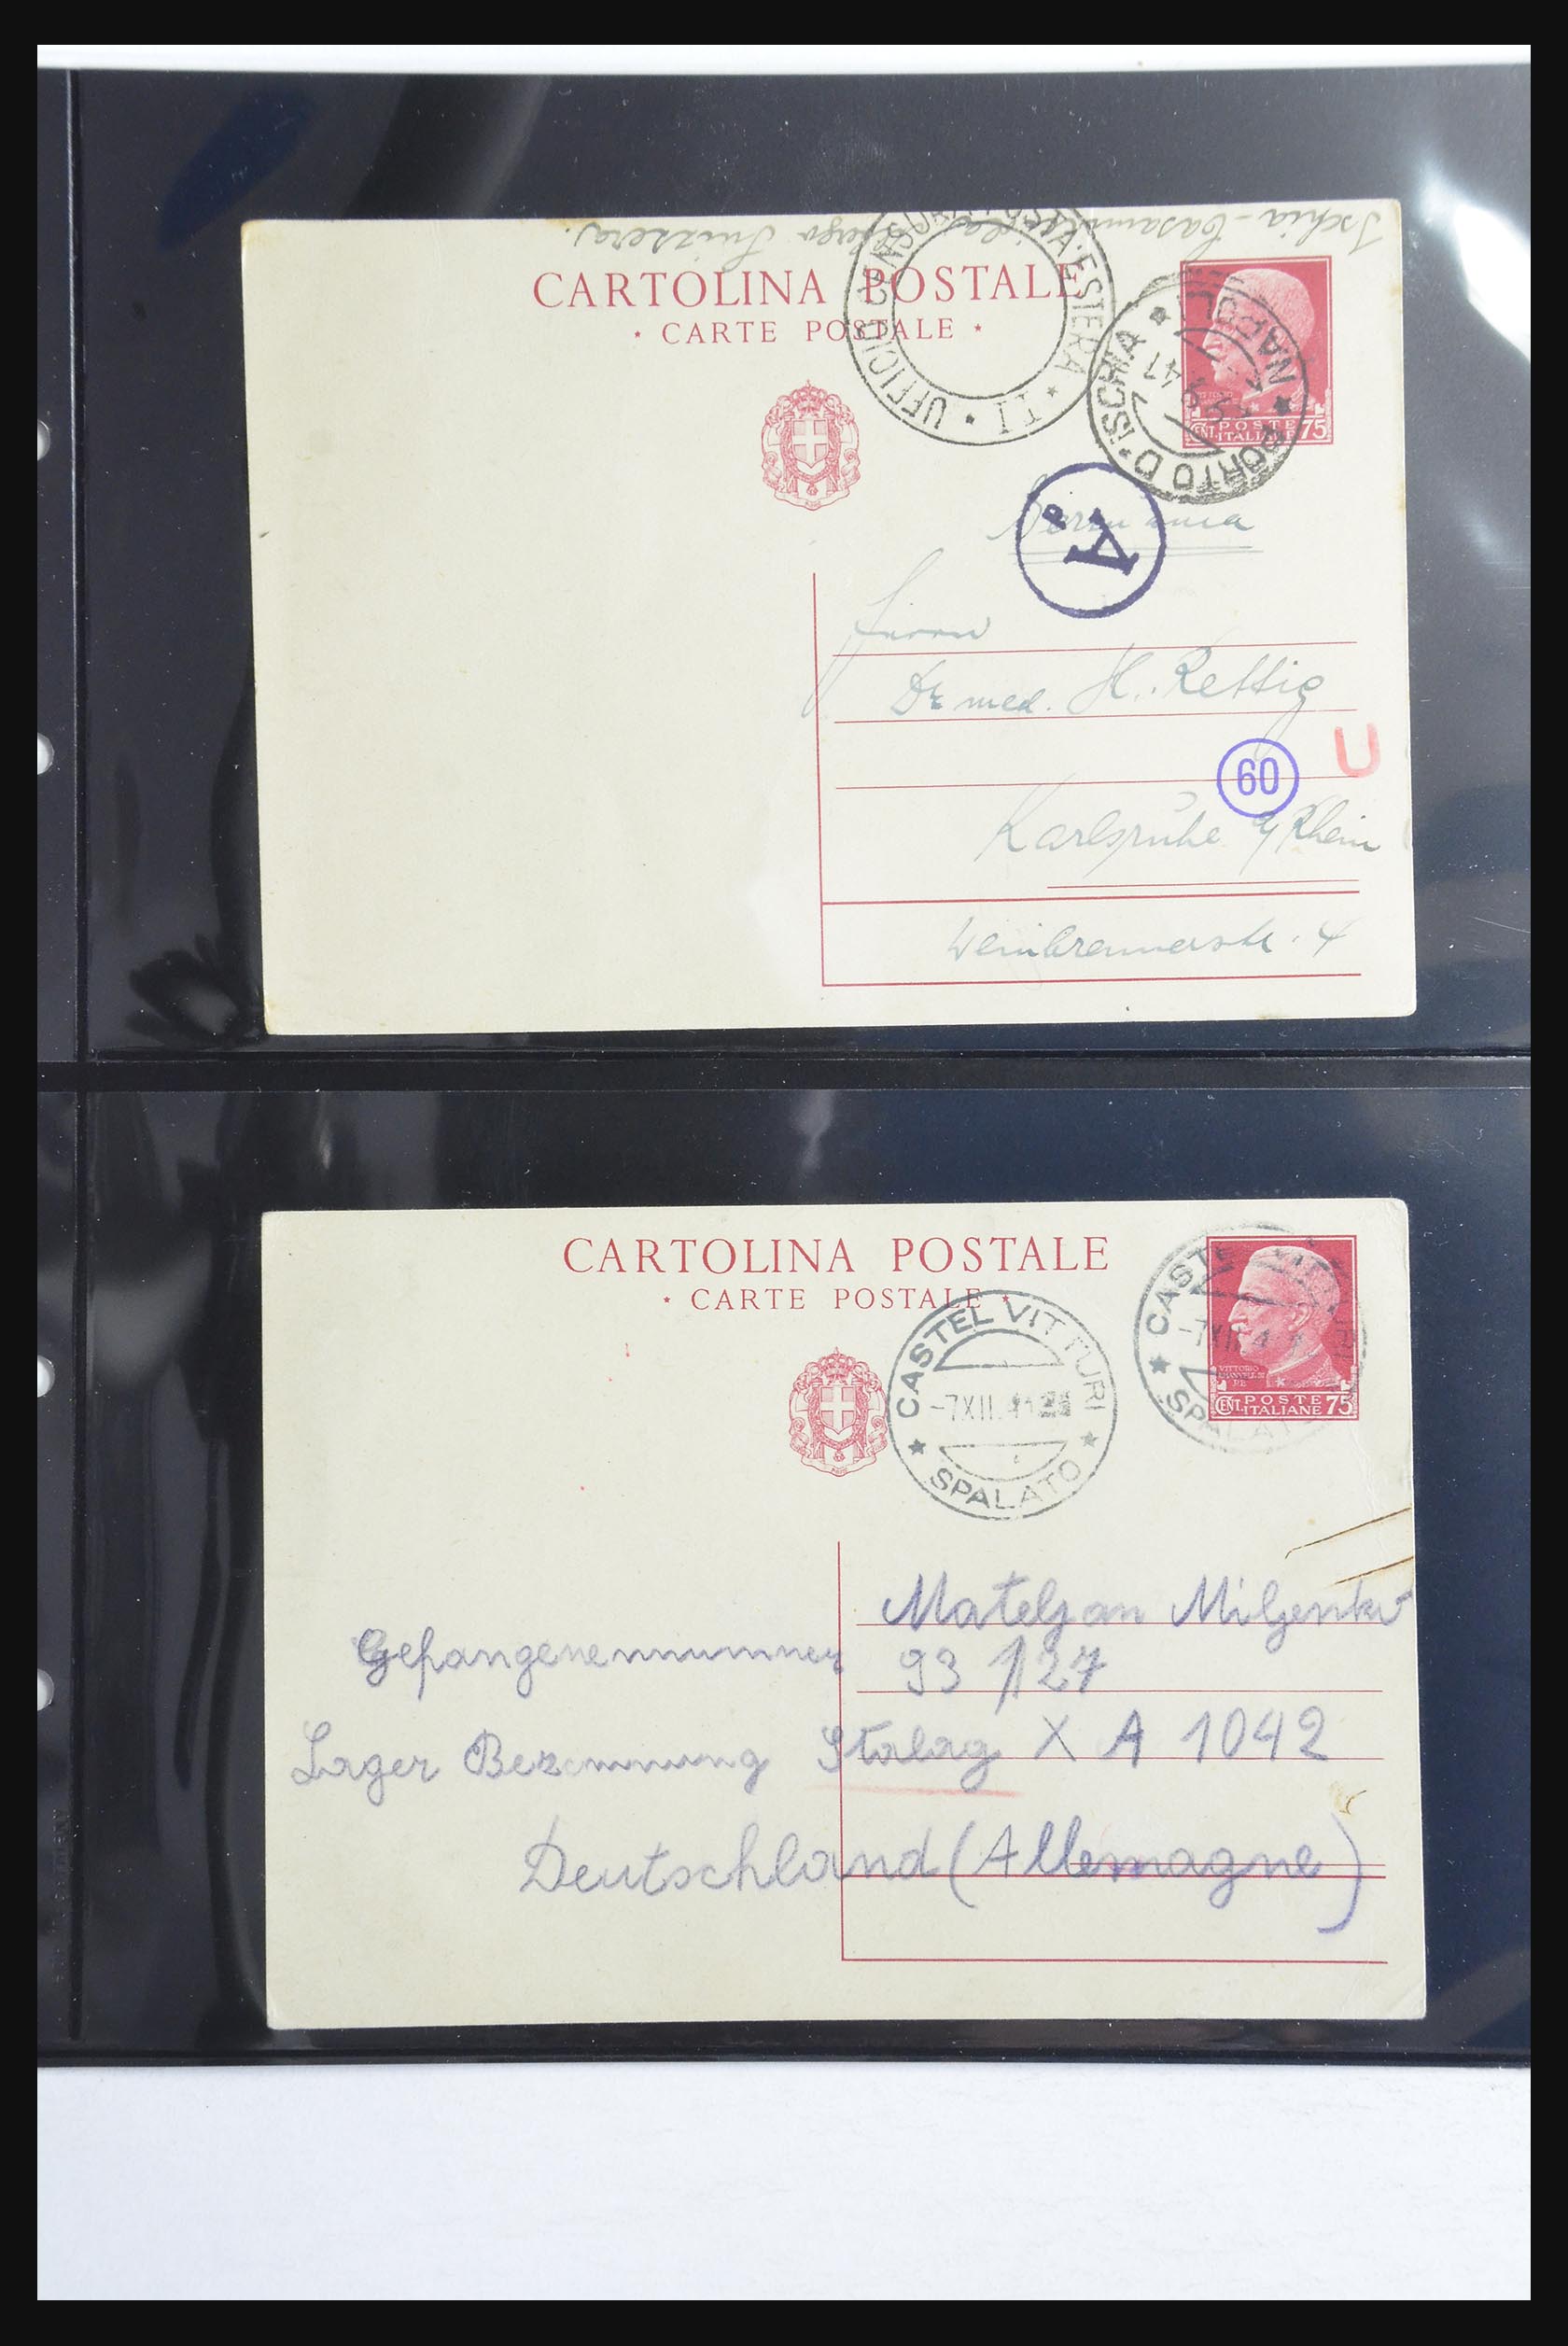 Ischia - Casamicciola Suizzera.
CARTOLINA POSTALE
· CARTE POSTALE ·
UFFICIO CENSURA POSTA ESTERA · II ·
PORTO D'ISCHIA ★ NAPOLI ★
CENT. POSTE ITALIANE 75
A
Germania
Herrn
Dr med. H. Rettig
60
U
Karlsruhe a/ Rhein
Weinbrennerstr. 4
CARTOLINA POSTALE
· CARTE POSTALE ·
CASTEL VITTURI
-7XII.41
★ SPALATO ★
CASTEL VITTURI
-7XII.41
★ SPALATO
VITTORIO EMANUELE III RE
CENT. POSTE ITALIANE 75
Mateljan Miljenko
Gefangenennummer 93127
Lager Bezennung Stalag X A 1042
Deutschland (Allemagne)